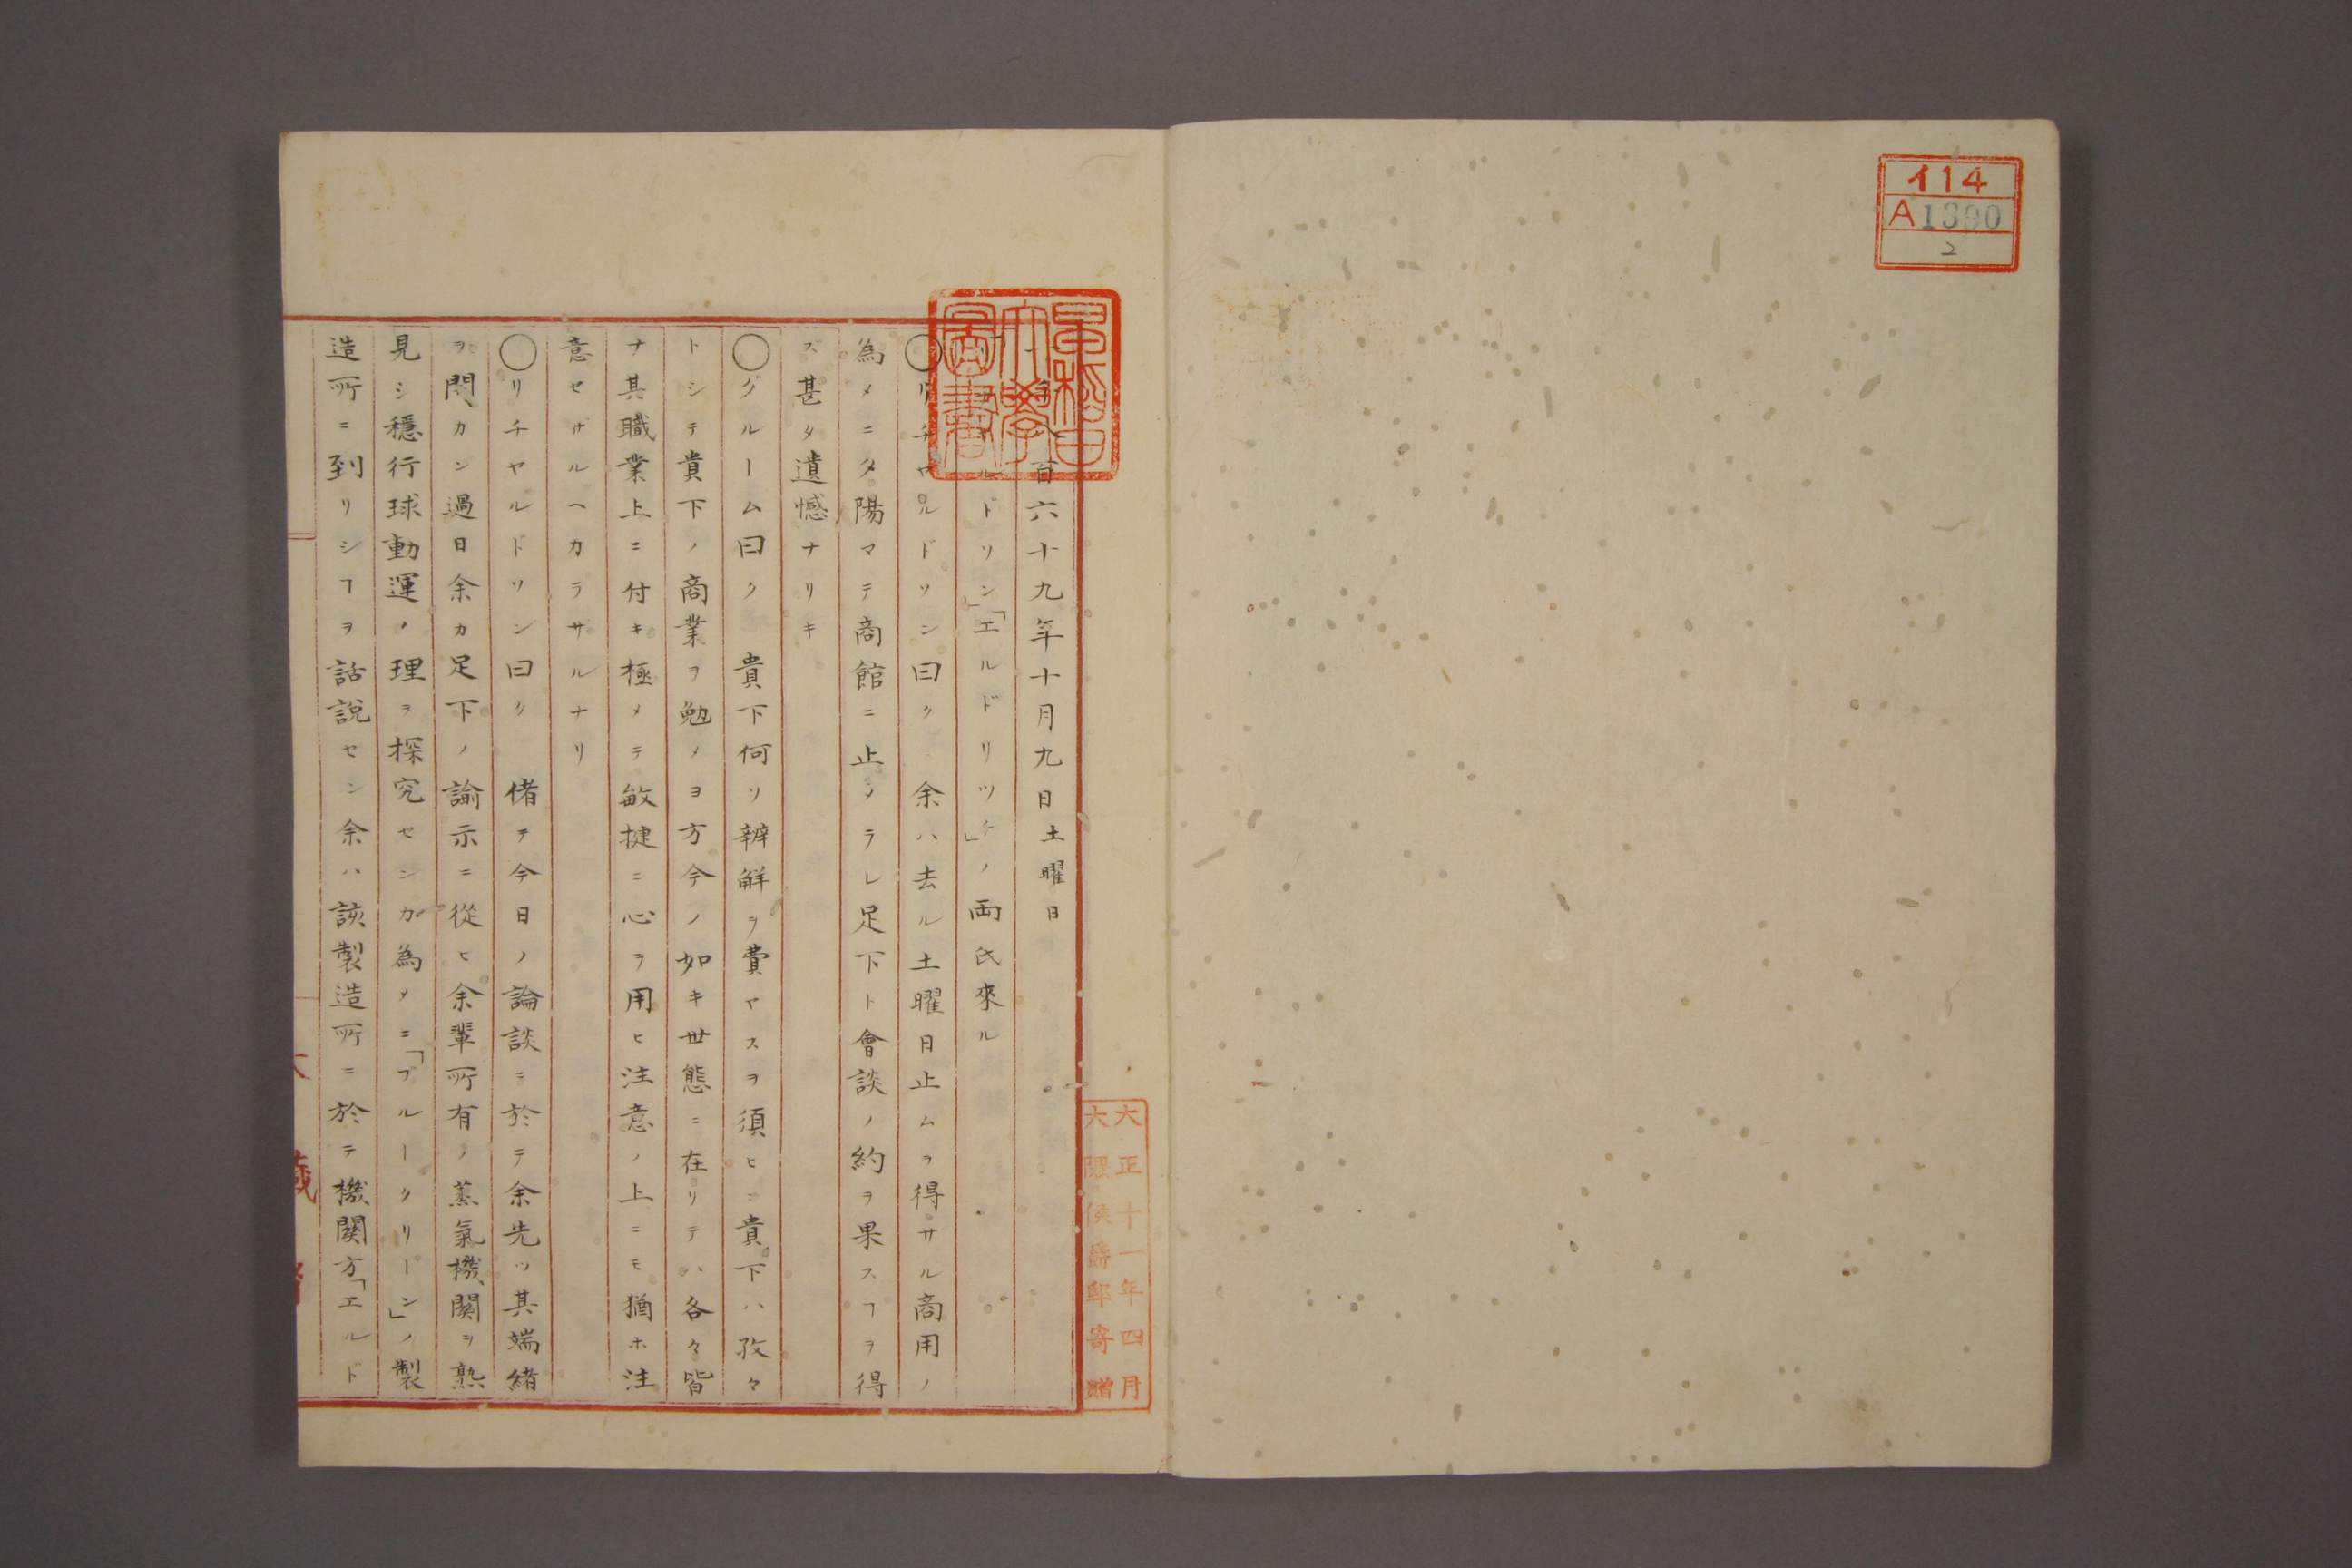 イ14
A1390
2
早稲田大學圖書
大正十一年四月
大隈侯爵邸寄贈
百六十九年十月九日土曜日
ルドソン」「エルドリツク」ノ両氏來ル
○リチヤルドソン曰ク 余ハ去ル土曜日止ムヲ得サル商用ノ
為メニ夕陽マテ商館ニ止メラレ足下ト會談ノ約ヲ果スヿヲ得
ス甚タ遺憾ナリキ
○グルーム曰ク 貴下何ソ辨解ヲ費ヤスヲ須ヒン貴下ハ孜々
トシテ貴下ノ商業ヲ勉メヨ方今ノ如キ世態ニ在リテハ各々皆
ナ其職業上ニ付キ極メテ敏捷ニ心ヲ用ヒ注意ノ上ニモ猶ホ注
意セザルヘカラサルナリ
○リチヤルドソン曰ク 偖テ今日ノ論談ニ於テ余先ツ其端緒
ヲ開カン過日余カ足下ノ諭示ニ從ヒ余輩所有ノ蒸氣機關ヲ熟
見シ穩行球動運ノ理ヲ探究センガ為メニ「ブルークリーン」ノ製
造所ニ到リシヿヲ話説セン余ハ該製造所ニ於テ機關方「エルド
藏